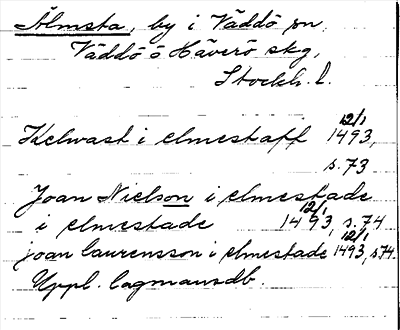 Älmsta, by i Väddö sn,
Väddö o Häverö skg,
Stockh. l.
Kelwast i elmestaff 12/1 1493,
s. 73
Joan Nielson i elmestade
i elmestade 12/1 1493, s. 74
joan laurensson i elmestade 12/1 1493, s 74.
Uppl. lagmansdb.